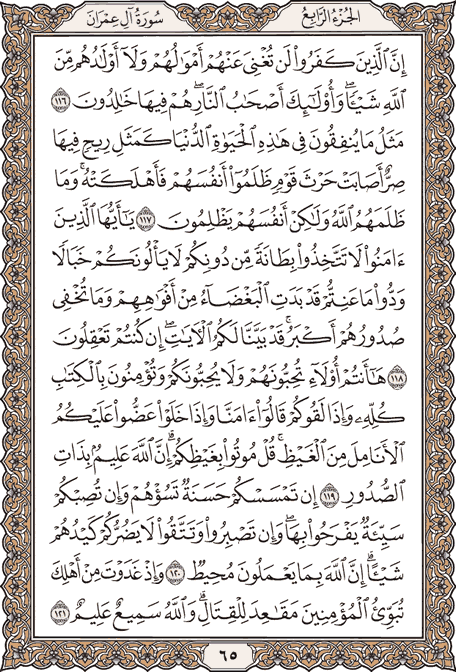 سُورَةُ آلِ عِمْرَانَ
الجُزْءُ الرَّابِعُ
إِنَّ ٱلَّذِينَ كَفَرُوا۟ لَن تُغْنِىَ عَنْهُمْ أَمْوَٰلُهُمْ وَلَآ أَوْلَٰدُهُم مِّنَ
ٱللَّهِ شَيْـًٔا ۖ وَأُو۟لَٰٓئِكَ أَصْحَٰبُ ٱلنَّارِ ۚ هُمْ فِيهَا خَٰلِدُونَ ١١٦
مَثَلُ مَا يُنفِقُونَ فِى هَٰذِهِ ٱلْحَيَوٰةِ ٱلدُّنْيَا كَمَثَلِ رِيحٍ فِيهَا
صِرٌّ أَصَابَتْ حَرْثَ قَوْمٍ ظَلَمُوٓا۟ أَنفُسَهُمْ فَأَهْلَكَتْهُ ۚ وَمَا
ظَلَمَهُمُ ٱللَّهُ وَلَٰكِنْ أَنفُسَهُمْ يَظْلِمُونَ ١١٧ يَٰٓأَيُّهَا ٱلَّذِينَ
ءَامَنُوا۟ لَا تَتَّخِذُوا۟ بِطَانَةً مِّن دُونِكُمْ لَا يَأْلُونَكُمْ خَبَالًا
وَدُّوا۟ مَا عَنِتُّمْ قَدْ بَدَتِ ٱلْبَغْضَآءُ مِنْ أَفْوَٰهِهِمْ وَمَا تُخْفِى
صُدُورُهُمْ أَكْبَرُ ۚ قَدْ بَيَّنَّا لَكُمُ ٱلْـَٔايَٰتِ ۖ إِن كُنتُمْ تَعْقِلُونَ
١١٨ هَٰٓأَنتُمْ أُو۟لَآءِ تُحِبُّونَهُمْ وَلَا يُحِبُّونَكُمْ وَتُؤْمِنُونَ بِٱلْكِتَٰبِ
كُلِّهِۦ وَإِذَا لَقُوكُمْ قَالُوٓا۟ ءَامَنَّا وَإِذَا خَلَوْا۟ عَضُّوا۟ عَلَيْكُمُ
ٱلْأَنَامِلَ مِنَ ٱلْغَيْظِ ۚ قُلْ مُوتُوا۟ بِغَيْظِكُمْ ۗ إِنَّ ٱللَّهَ عَلِيمٌۢ بِذَاتِ
ٱلصُّدُورِ ١١٩ إِن تَمْسَسْكُمْ حَسَنَةٌ تَسُؤْهُمْ وَإِن تُصِبْكُمْ
سَيِّئَةٌ يَفْرَحُوا۟ بِهَا ۖ وَإِن تَصْبِرُوا۟ وَتَتَّقُوا۟ لَا يَضُرُّكُمْ كَيْدُهُمْ
شَيْـًٔا ۗ إِنَّ ٱللَّهَ بِمَا يَعْمَلُونَ مُحِيطٌ ١٢٠ وَإِذْ غَدَوْتَ مِنْ أَهْلِكَ
تُبَوِّئُ ٱلْمُؤْمِنِينَ مَقَٰعِدَ لِلْقِتَالِ ۗ وَٱللَّهُ سَمِيعٌ عَلِيمٌ ١٢١
٦٥